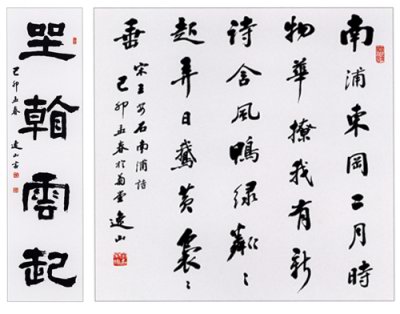 坐看雲起
己卯孟春 逸山書
南浦東岡二月時
物華撩我有新
詩含風鴨綠粼々
起弄日鵞黃裊々
垂
宋王安石南浦詩
己卯孟春於 逸山